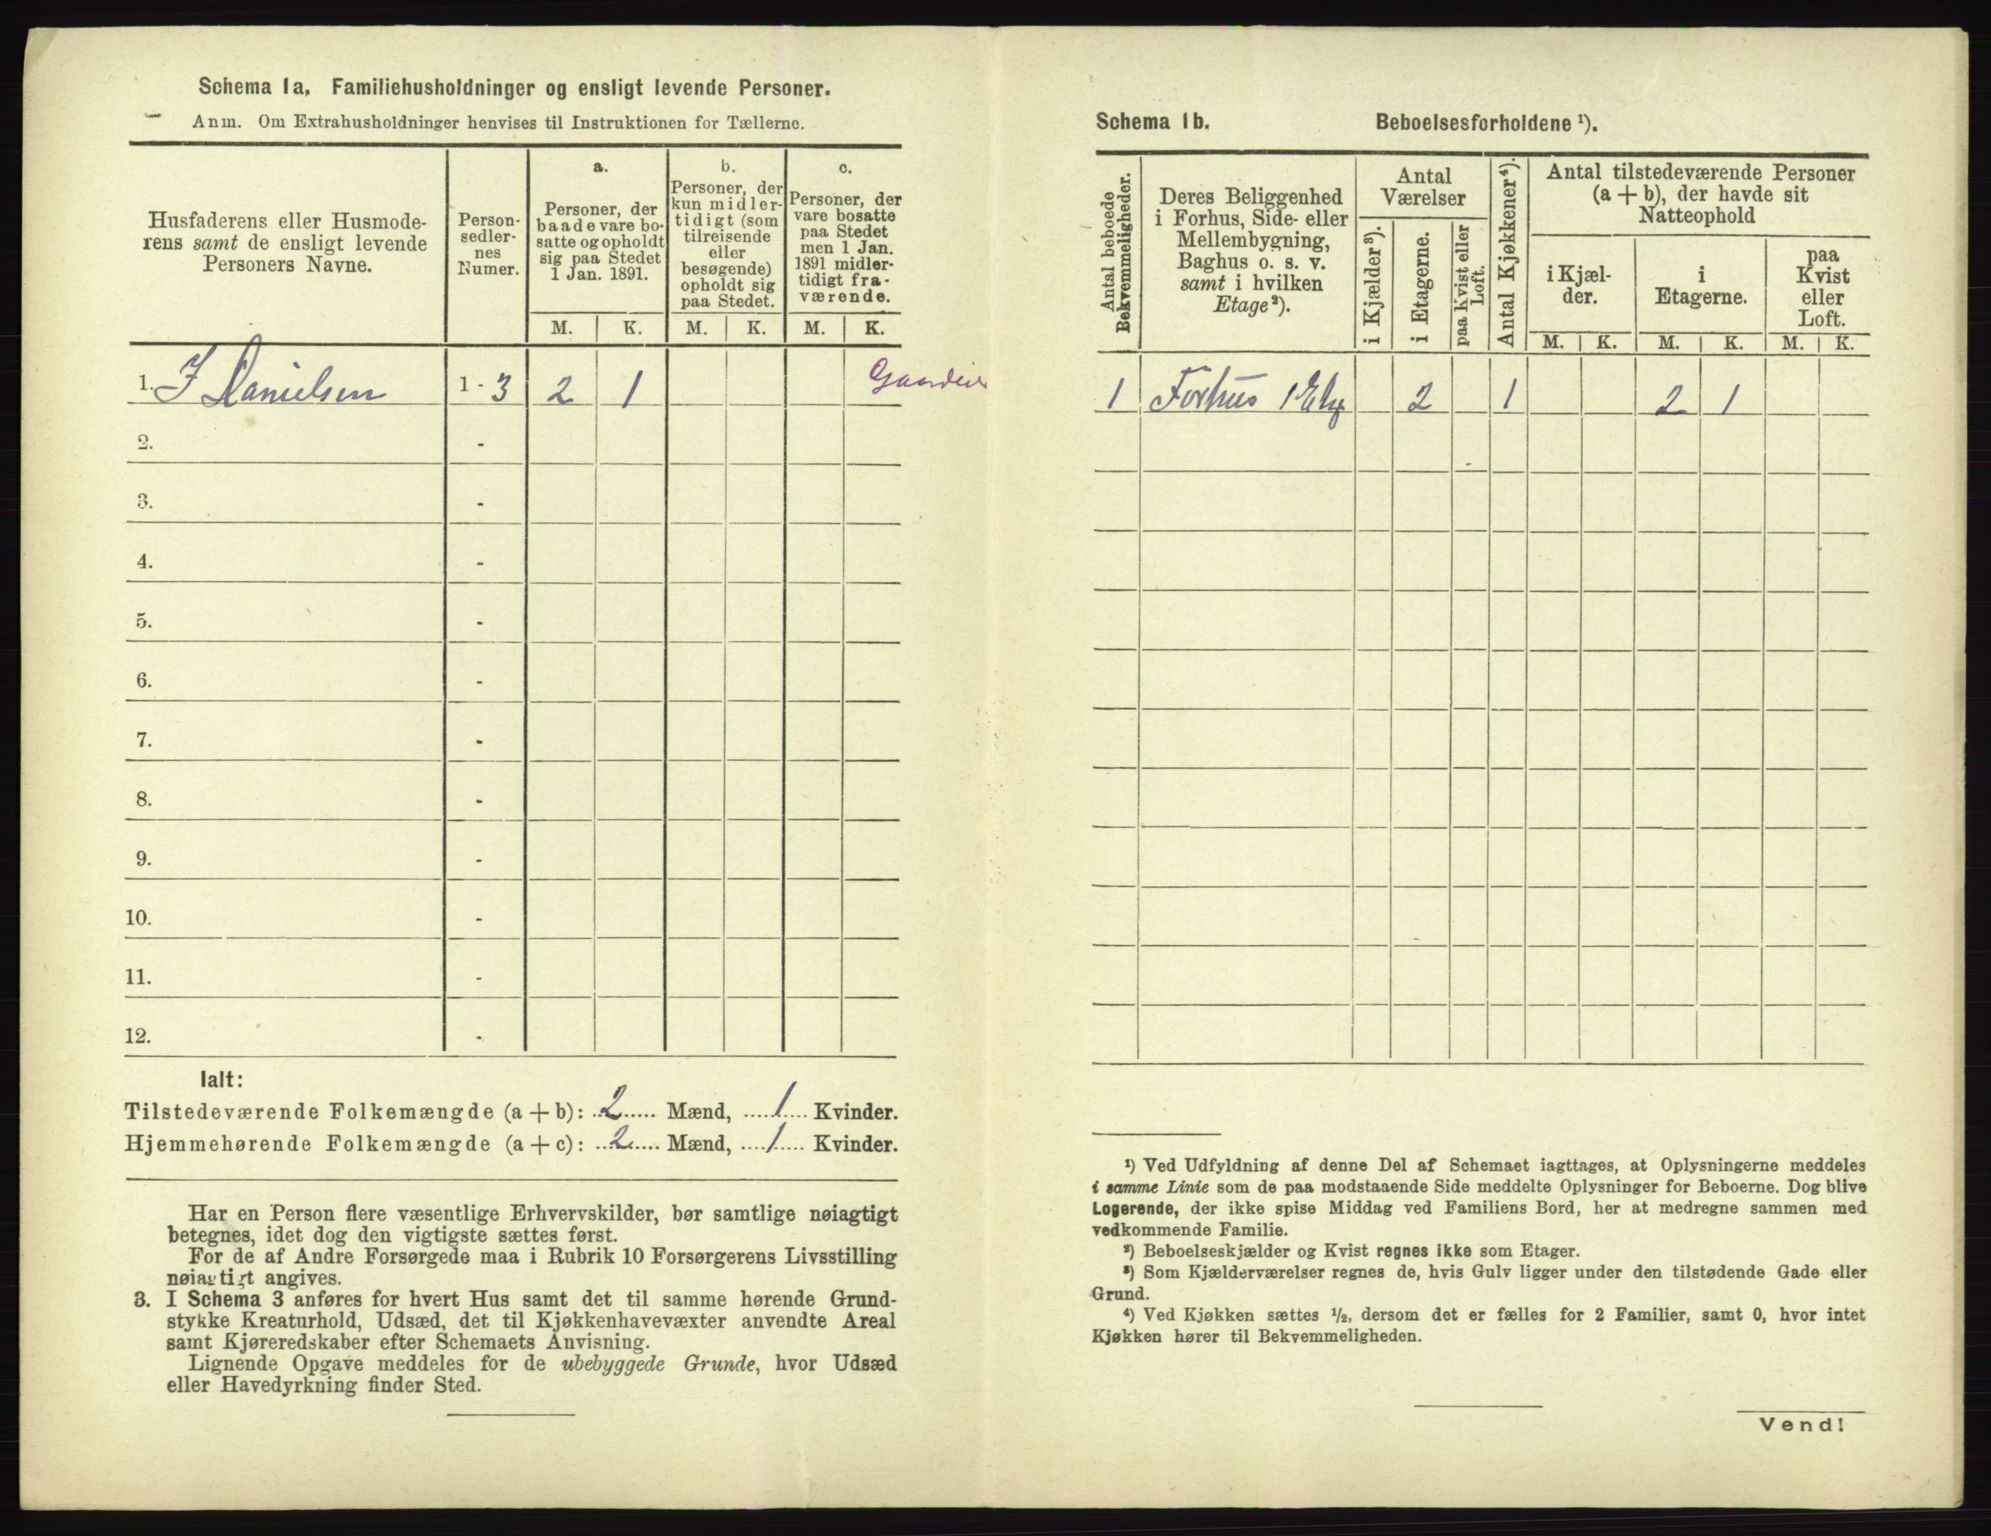 Schema 1a. Familiehusholdninger og ensligt levende Personer.
Anm. Om Extrahusholdninger henvises til Instruktionen for Tællerne.
Husfaderens eller Husmode-
rens samt de ensligt levende
Personers Navne.
Person-
sedler-
nes
Numer.
a.
Personer, der
baade vare bo-
satte og opholdt
sig paa Stedet
1 Jan. 1891.
b.
Personer, der
kun midler-
tidigt (som
tilreisende
eller
besøgende)
opholdt sig
paa Stedet.
c.
Personer, der
vare bosatte
paa Stedet
men 1 Jan.
1891 midler-
tidigt fra-
værende.
M. K. M. K. M. K.
1. J Danielsen 1 - 3 2 1
2. -
3. -
4. -
5. -
6. -
7. -
8. -
9. -
10. -
11. -
12. -
Ialt:
Tilstedeværende Folkemængde (a + b): 2 Mænd, 1 Kvinder.
Hjemmehørende Folkemængde (a + c): 2 Mænd, 1 Kvinder.
Har en Person flere væsentlige Erhvervskilder, bør samtlige nøiagtigt
betegnes, idet dog den vigtigste sættes først.
For de af Andre Forsørgede maa i Rubrik 10 Forsørgerens Livsstilling
nøiagtigt angives.
3. I Schema 3 anføres for hvert Hus samt det til samme hørende Grund-
stykke Kreaturhold, Udsæd, det til Kjøkkenhavevæxter anvendte Areal
samt Kjøreredskaber efter Schemaets Anvisning.
Lignende Opgave meddeles for de ubebyggede Grunde, hvor Udsæd
eller Havedyrkning finder Sted.
Schema 1b. Beboelsesforholdene ¹).
Antal beboede
Bekvemmeligheder.
Deres Beliggenhed
i Forhus, Side- eller
Mellembygning,
Baghus o. s. v.
samt i hvilken
Etage²).
Antal
Værelser
i Kjælder³).
i Etagerne.
paa Kvist eller
Loft.
Antal Kjøkkener⁴).
Antal tilstedeværende Personer
(a + b), der havde sit
Natteophold
i Kjæl-
der.
i
Etagerne.
paa
Kvist
eller
Loft.
M. K. M. K. M. K.
1 Forhus 1 Etg 2 1 2 1
¹) Ved Udfyldning af denne Del af Schemaet iagttages, at Oplysningerne meddeles
i samme Linie som de paa modstaaende Side meddelte Oplysninger for Beboerne. Dog blive
Logerende, der ikke spise Middag ved Familiens Bord, her at medregne sammen med
vedkommende Familie.
²) Beboelseskjælder og Kvist regnes ikke som Etager.
³) Som Kjælderværelser regnes de, hvis Gulv ligger under den tilstødende Gade eller
Grund.
⁴) Ved Kjøkken sættes ½, dersom det er fælles for 2 Familier, samt 0, hvor intet
Kjøkken hører til Bekvemmeligheden.
Vend!